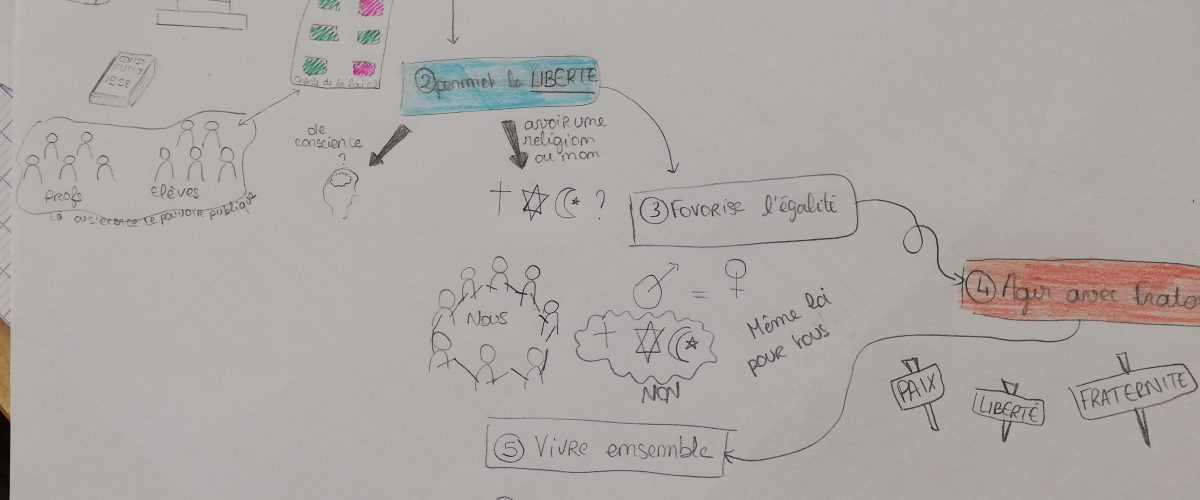 CONST-
TUTION
1958
Charte de la laïcité
② permet la LIBERTE
de
conscience
?
avoir une
religion
ou non
?
Profs
Elèves
là où s'exerce le pouvoir publique
③ FAVORISE l'égalité
④ Agir avec frate
Nous
=
Même loi
pour tous
NON
PAIX
LIBERTÉ
FRATERNITE
⑤ Vivre ensemble